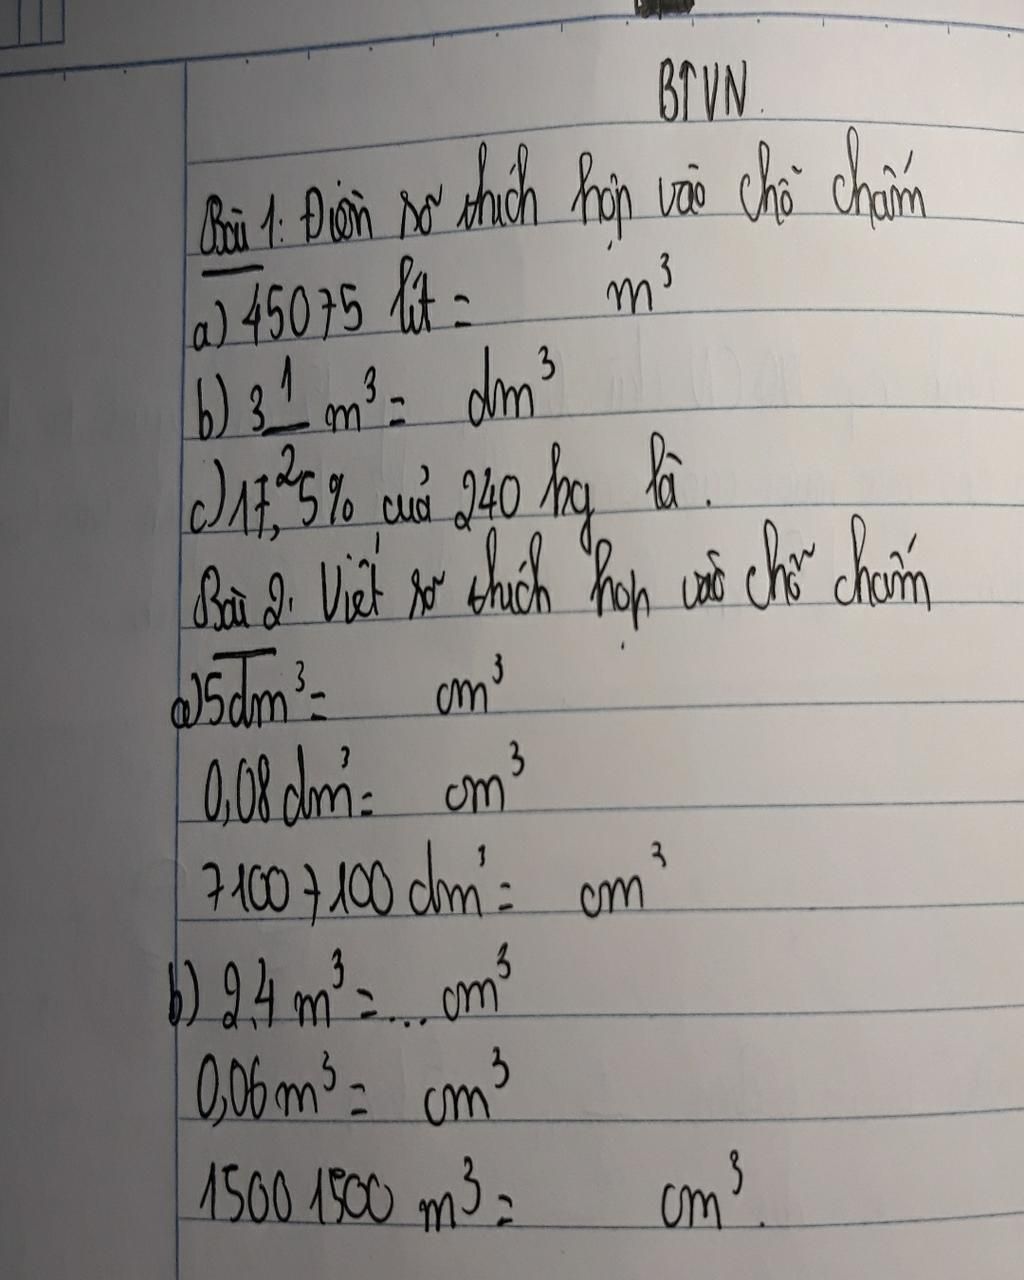 BTVN.
Bài 1: Điền số thích hợp vào chỗ chấm
a) 45075 lít = m³
b) 3 1/2 m³ = dm³
c) 17,5% của 240 kg là.
Bài 2. Viết số thích hợp vào chỗ chấm
a) 5dm³ = cm³
0,08 dm³ = cm³
7100 7100 dm³ = cm³
b) 2,4 m³ = ... cm³
0,06 m³ = cm³
1500 1500 m³ = cm³.